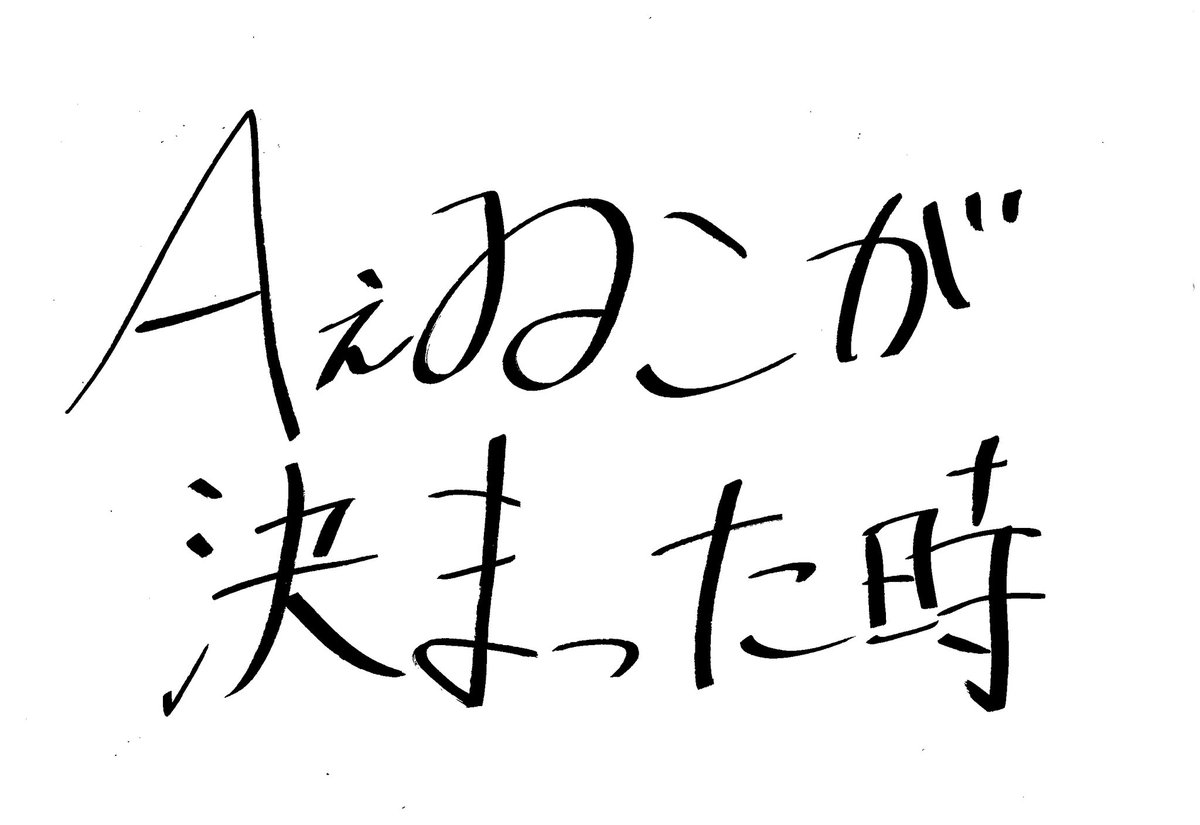 Aぇぬこが
決まった時